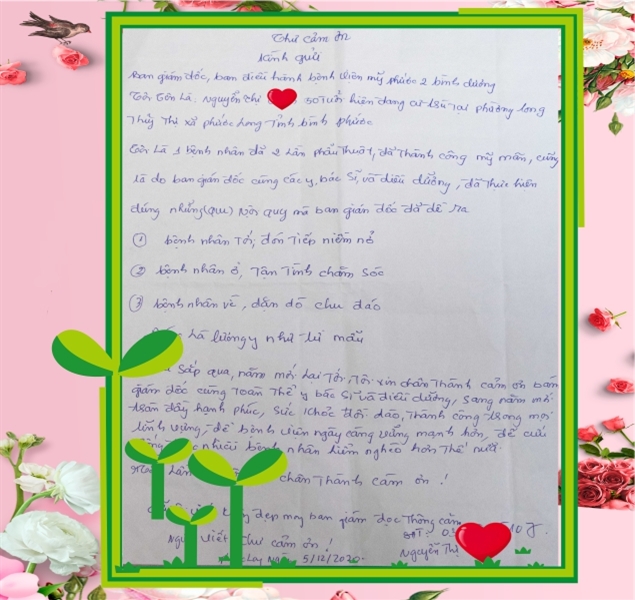 Thư cảm ơn
Kính gửi
Ban giám đốc, ban điều hành bệnh viện mỹ phước 2 bình dương
Tôi Tên Là: Nguyễn Thị 50 Tuổi hiện đang cư trú tại phường long
Thủy Thị xã phước Long Tỉnh bình phước
Tôi Là 1 bệnh nhân đã 2 Lần phẩu Thuật, đã Thành công mỹ mãn, cũng
là do ban giám đốc cùng các y, bác Sĩ và điều dưỡng, đã Thực hiện
đúng những (qu) Nội quy mà ban giám đốc đã đề ra
① bệnh nhân Tới, đón Tiếp niềm nở
② bệnh nhân ở, Tận Tình chăm Sóc
③ bệnh nhân về, dặn dò chu đáo
Là lương y như từ mẫu
Sắp qua, năm mới Lại Tới, Tôi xin chân Thành cảm ơn ban
giám đốc cùng Toàn Thể y bác Sĩ và điều dưỡng, Sang năm mới
tràn đầy hạnh phúc, Sức Khỏe dồi dào, Thành công trong mọi
Lĩnh vựng, để bệnh viện ngày càng vững mạnh hơn, để cứu
nhiều bệnh nhân hiểm nghèo hơn Thế nữa.
Lần chân Thành cảm ơn !
đẹp mong ban giám đọc Thông cảm
Viết Thư cảm ơn ! SĐT: 0
Ngày 5/12/2020. Nguyễn Thị